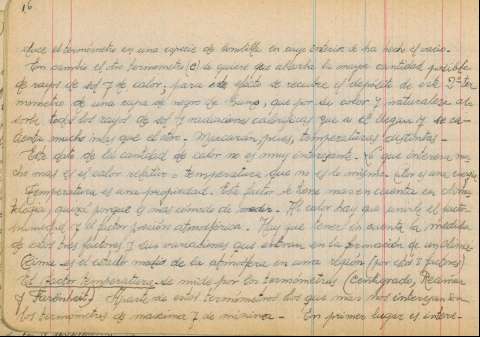 16
duce el termómetro en una especie de botella en cuyo interior se ha hecho el vacío.
En cambio el otro termómetro (C) se quiere que absorba la mayor cantidad posible
de rayos de sol y de calor; para este efecto se recubre el depósito de este 2º ter
mómetro de una capa de negro de humo, que por su color y naturaleza ab
sorbe todos los rayos de sol y radiaciones caloríficas que a él llegan y se ca-
lienta mucho más que el otro. - Marcarán, pues, temperaturas distintas. -
Este dato de la cantidad de calor no es muy interesante. Lo que interesa mu
cho más es el calor relativo o temperatura que no es lo mismo. Calor es una energía
Temperatura es una propiedad. Este factor se tiene más en cuenta en clima
tología, quizá porque es más cómodo de medir. Al calor hay que unirle el factor
humedad y el factor presión atmosférica. Hay que tener en cuenta la medida
de estos tres factores y sus variaciones que entran en la formación de un clima
Clima es el estado medio de la atmósfera en una región (por esos 3 factores)
El factor temperatura se mide por los termómetros (Centígrado, Reamur
y Farenheit) Aparte de estos termómetros los que más nos interesan son
los termómetros de máxima y de mínima. - En primer lugar es intere-